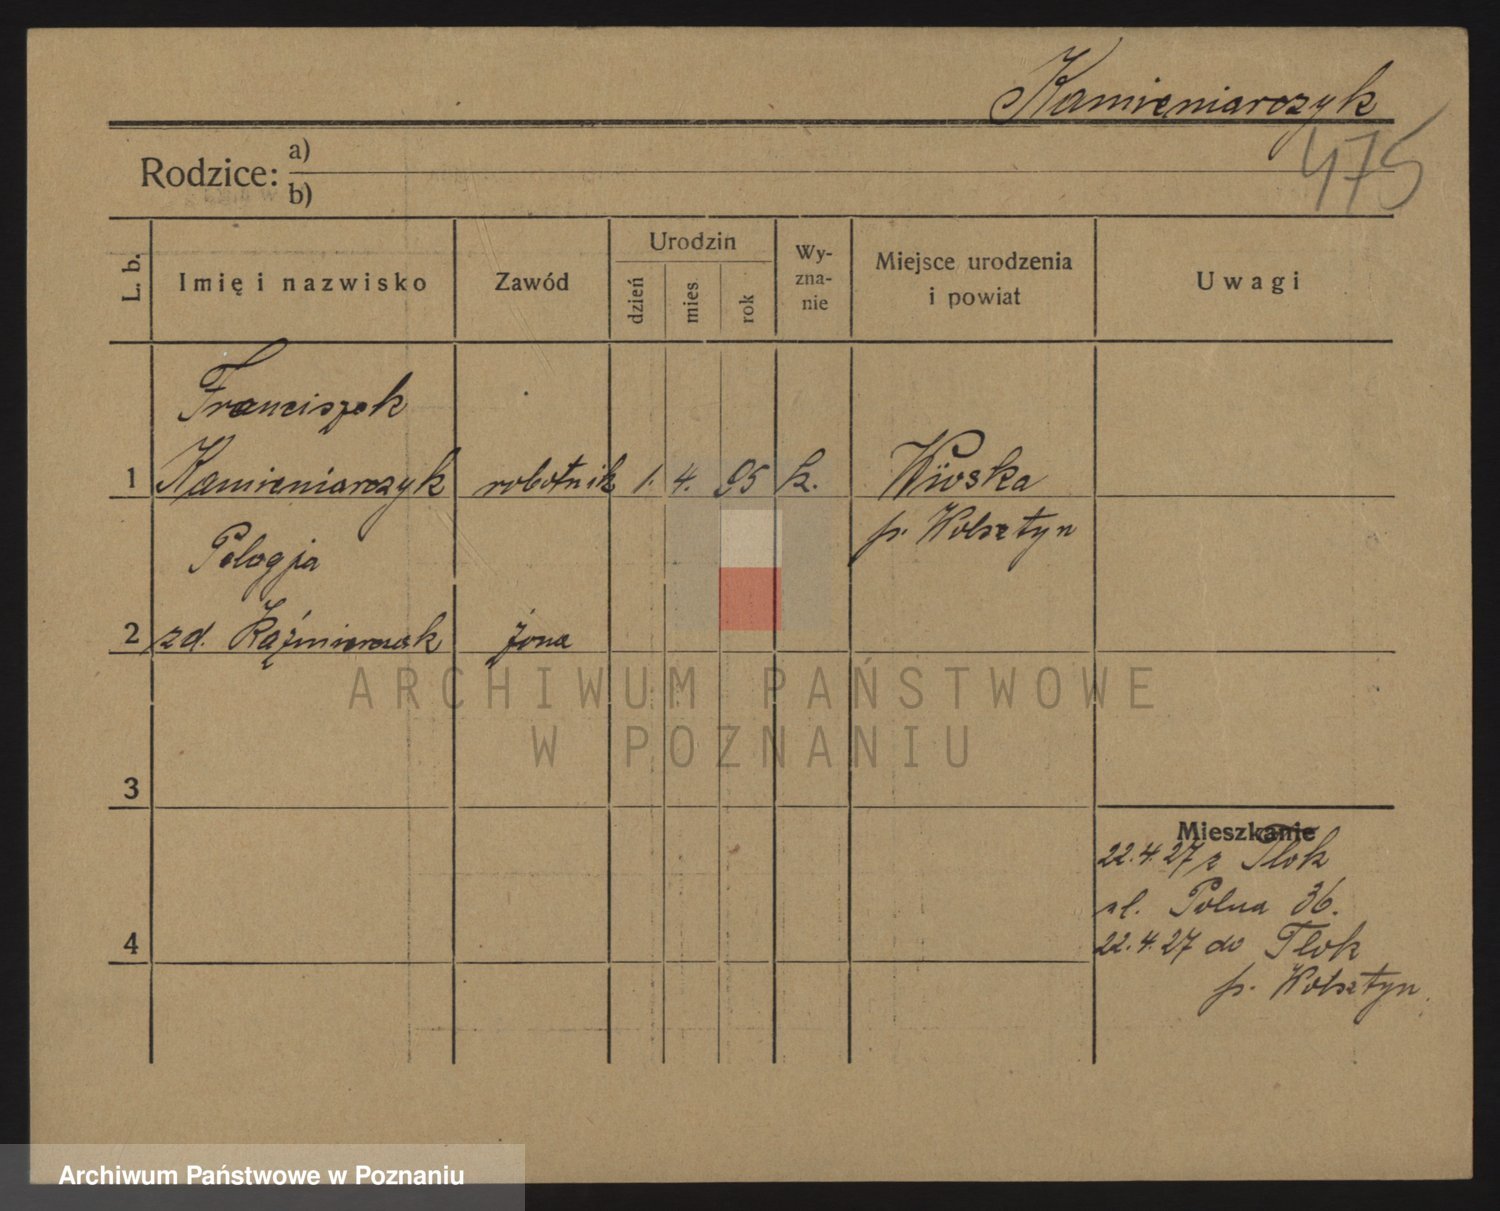 Kamieniarczyk
475
Rodzice: a)
b)
L. b.
Imię i nazwisko
Zawód
Urodzin
dzień
mies.
rok
Wy-
zna-
nie
Miejsce urodzenia
i powiat
Uwagi
Franciszek
1 Kamieniarczyk robotnik 1. 4. 95 k. Wioska
p. Wolsztyn
Pelagja
2 zd. Kaźmierczak żona
ARCHIWUM PAŃSTWOWE
W POZNANIU
3
Mieszkanie
22.4.27 z Tłok
ul. Polna 36.
4
22.4.27 do Tłok
p. Wolsztyn.
Archiwum Państwowe w Poznaniu